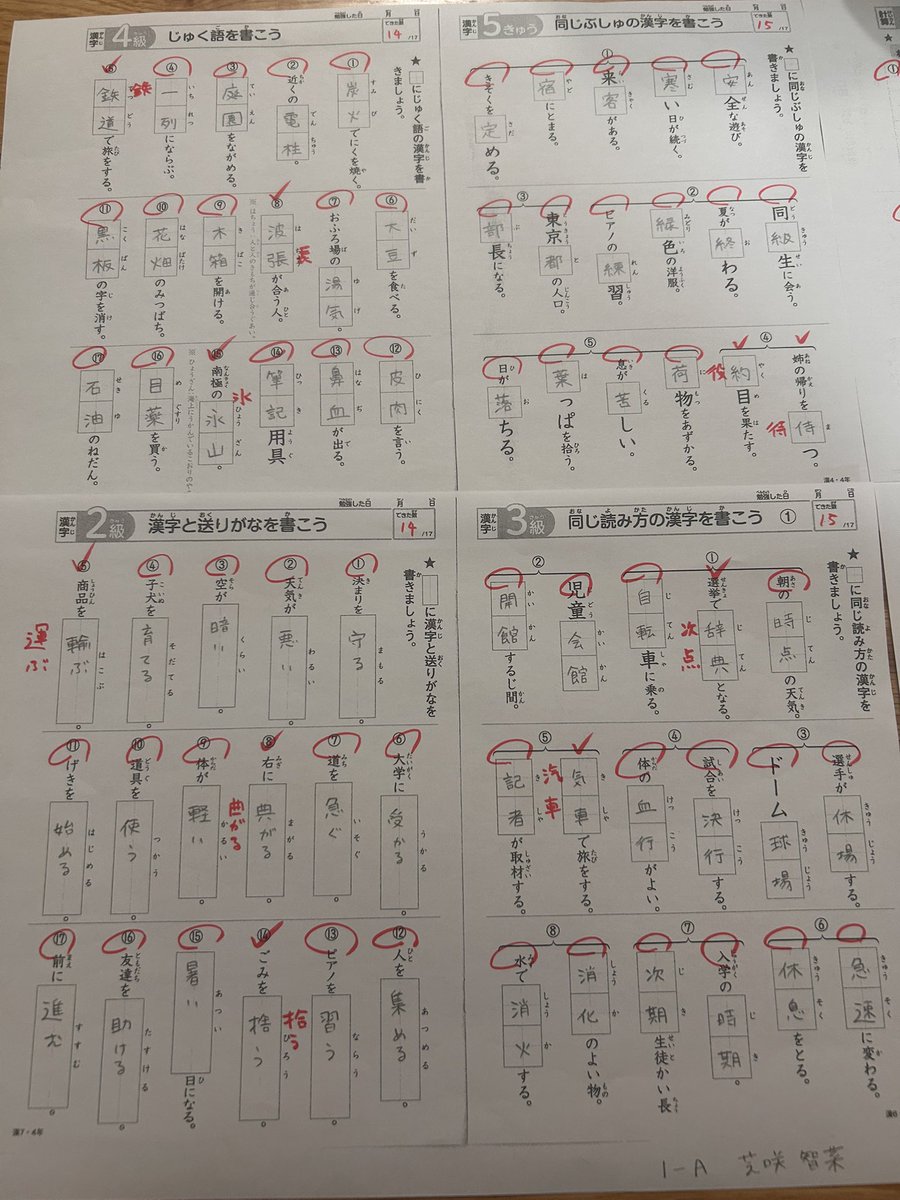 漢字 4級 じゅく語を書こう
勉強した日 月 日
できた数 14 /17
★□にじゅく語の漢字を書きましょう。
① 炭火でにくを焼く。
② 近くの電柱。
③ 庭園をながめる。
④ 一列にならぶ。
⑤ 鉄道で旅をする。
鉄
⑥ 大豆を食べる。
⑦ おふろ場の湯気。
⑧ 波張が合う人。
長
⑨ 木箱を開ける。
⑩ 花畑のみつばち。
⑪ 黒板の字を消す。
⑫ 皮肉を言う。
⑬ 鼻血が出る。
⑭ 筆記用具
⑮ 南極の氷山。
氷
⑯ 目薬を買う。
⑰ 石油のねだん。
漢字 5きゅう 同じぶしゅの漢字を書こう
できた数 15 /17
★□に同じぶしゅの漢字を書きましょう。
① 安全な遊び。
寒い日が続く。
来客がある。
宿にとまる。
きそくを定める。
② 同級生に会う。
夏が終わる。
緑色の洋服。
ピアノの練習。
③ 東京都の人口。
部長になる。
④ 姉の帰りを侍つ。
待
約目を果たす。
役
⑤ 荷物をあずかる。
息が苦しい。
葉っぱを拾う。
日が落ちる。
漢4・4年
漢字 2級 漢字と送りがなを書こう
勉強した日 月 日
できた数 14 /17
★□に漢字と送りがなを書きましょう。
① 決まりを守る。
② 天気が悪い。
③ 空が暗い。
④ 子犬を育てる。
⑤ 商品を輪ぶ。
運ぶ
⑥ 大学に受かる。
⑦ 道を急ぐ。
⑧ 右に典がる。
曲がる
⑨ 体が軽い。
⑩ 道具を使う。
⑪ げきを始める。
⑫ 人を集める。
⑬ ピアノを習う。
⑭ ごみを捨う。
拾う
⑮ 暑い日になる。
⑯ 友達を助ける。
⑰ 前に進む。
漢7・4年
漢字 3級 同じ読み方の漢字を書こう ①
勉強した日 月 日
できた数 15 /17
★□に同じ読み方の漢字を書きましょう。
① 朝の時点の天気。
選挙で辞典となる。
次点
自転車に乗る。
② 児童会館
開館するじ間。
③ 選手が休場する。
ドーム球場
④ 試合を決行する。
体の血行がよい。
⑤ 気車で旅をする。
汽車
記者が取材する。
⑥ 急速に変わる。
休息をとる。
⑦ 入学の時期。
次期生徒かい長
⑧ 消化のよい物。
水で消火する。
1-A 芝咲 智菜